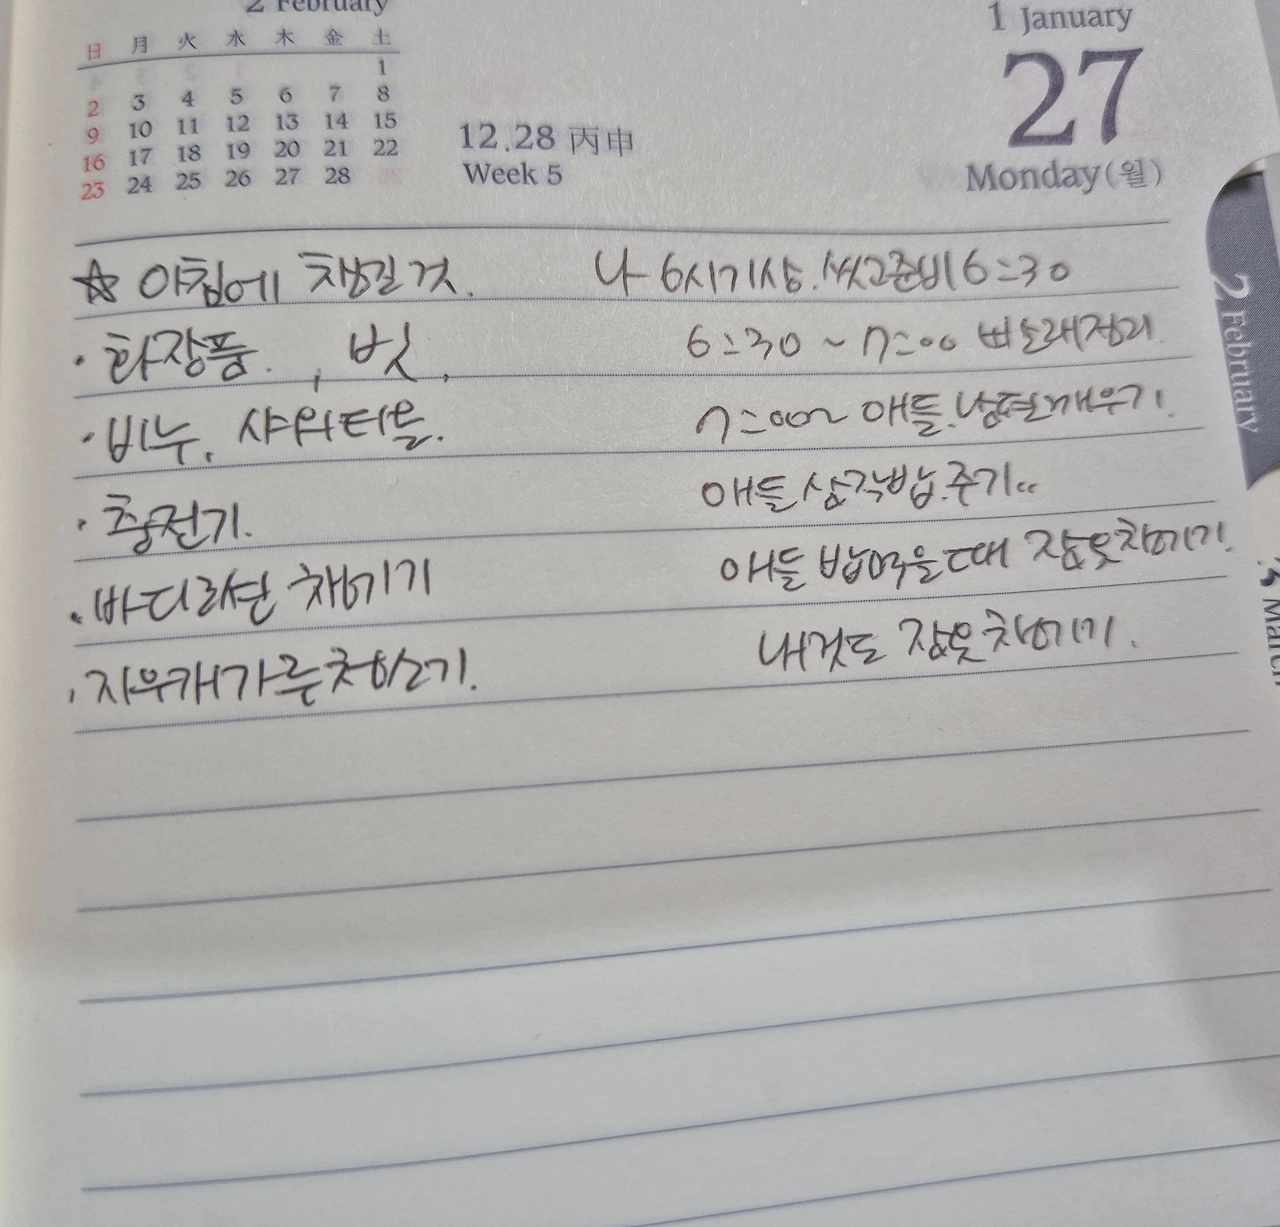 2 February
日 月 火 水 木 金 土
1
2 3 4 5 6 7 8
9 10 11 12 13 14 15
16 17 18 19 20 21 22
23 24 25 26 27 28
12.28 丙申
Week 5
1 January
27
Monday(월)
☆ 아침에 챙길것.
· 화장품. , 빗,
· 비누, 샤워타올.
· 충전기.
· 바디로션 챙기기
· 지우개가루청소기.
나 6시기상. 씻고준비 6:30
6:30 ~ 7:00 빨래정리.
7:00~ 애들.남편깨우기.
애들 삼각밥.주기..
애들 밥먹을때 잠옷챙기기.
내것도 잠옷챙기기.
2 February
3 March